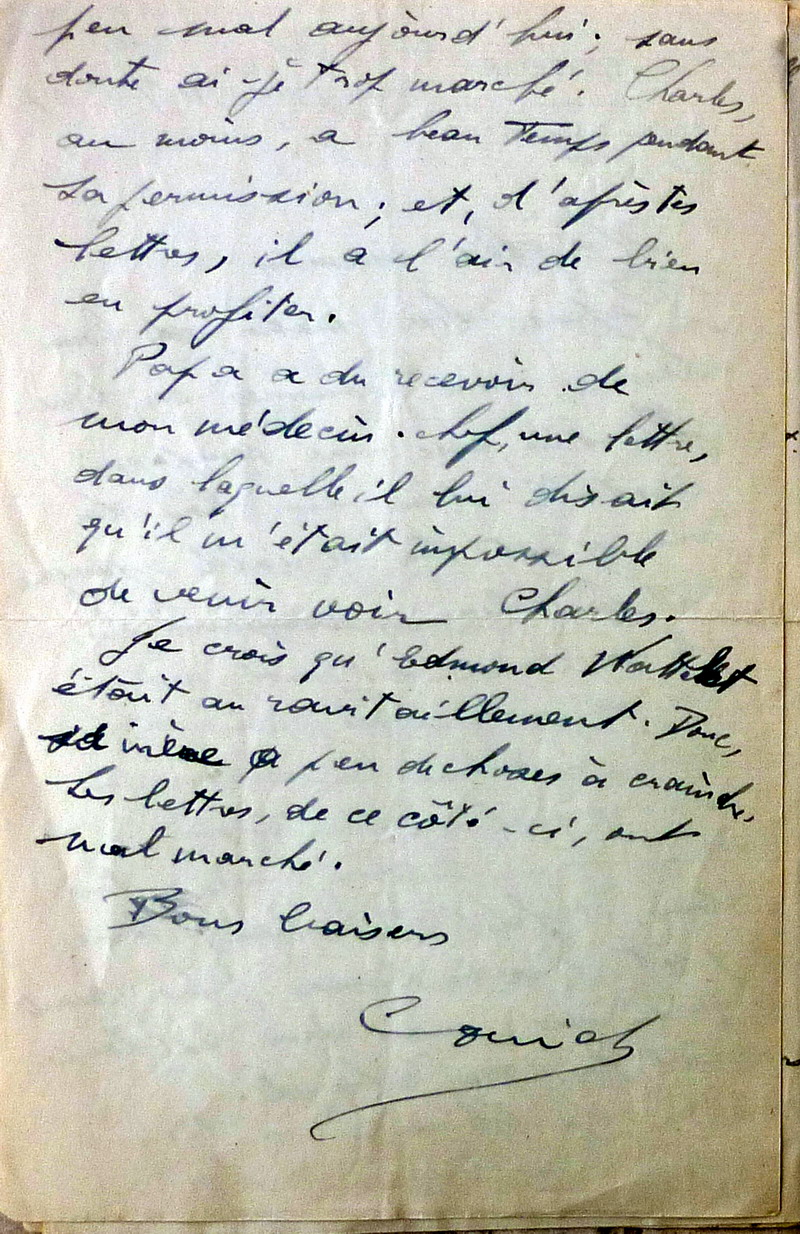 peu mal aujourd'hui; sans
doute ai-je trop marché. Charles,
au moins, a beau temps pendant
sa permission; et, d'après tes
lettres, il a l'air de bien
en profiter.
Papa a du recevoir de
mon médecin-chef, une lettre,
dans laquelle il lui disait
qu'il m'était impossible
de venir voir Charles.
Je crois qu'Edmond
était au ravitaillement. Donc,
peu de choses à craindre.
Les lettres, de ce côté-ci, ont
mal marché.
Bons baisers